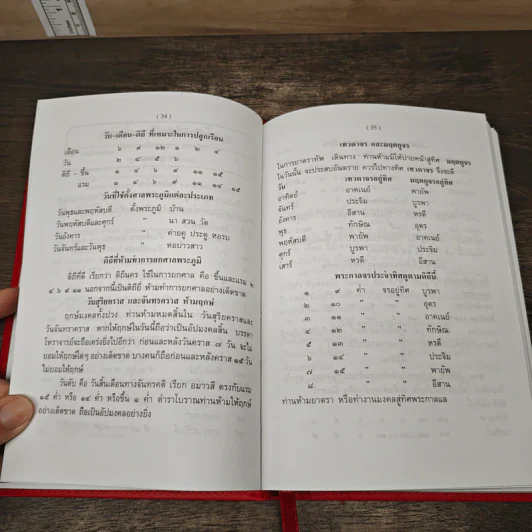 ( 34 )
วัน-เดือน-ดิถี ที่เหมาะในการปลูกเรือน
เดือน ๖ ๙ ๑๒ ๑ ๒ ๔
วัน ๒ ๔ ๕ ๖
ดิถี - ขึ้น ๑ ๔ ๖ ๙ ๑๑ ๑๕
แรม ๑ ๔ ๖ ๙ ๑๑ ๑๔ ๑๕
วันที่ใช้ตั้งศาลพระภูมิแต่ละประเภท
วันพุธและพฤหัสบดี ตั้งพระภูมิ บ้าน
วันพฤหัสบดีและศุกร์ " นา สวน วัด
วันอังคาร " ค่ายคู ประตู หอรบ
วันจันทร์และวันพุธ " หอบ่าวสาว
ดิถีที่ห้ามทำการยกศาลพระภูมิ
ดิถีที่ดี เรียกว่า ดิถีนคร ใช้ในการยกศาล คือ ขึ้นและแรม ๒
๔ ๖ ๙ ๑๑ นอกจากนี้เป็นดิถีถี่ ห้ามทำการยกอย่างเด็ดขาด
วันสุริยคราส และจันทรคราส ห้ามฤกษ์
ฤกษ์มงคลทั้งปวง ท่านห้ามหมดสิ้นใน วันสุริยคราสและ
วันจันทราคราส หากให้ฤกษ์ในวันนี้ถือว่าเป็นอัปมงคลสิ้น บรรดา
โหราจารย์จะถือเคร่งยิ่งไปอีกว่า ก่อนและหลังวันคราส ๗ วัน จะไม่
ยอมให้ฤกษ์ใดๆ อย่างเด็ดขาด บางคนก็ถือก่อนและหลังคราส ๑๕ วัน
ไม่ยอมให้ฤกษ์
วันดับ คือ วันสิ้นเดือนทางจันทรคติ เรียก อมาวสี ตรงกับแรม
๑๕ ค่ำ หรือ ๑๔ ค่ำ หรือขึ้น ๑ ค่ำ ตำราโบราณท่านห้ามให้ฤกษ์
อย่างเด็ดขาด ถือเป็นอัปมงคลอย่างยิ่ง
( 35 )
เทวดาจร และมฤตยูจร
ในการยาตราทัพ เดินทาง ท่านห้ามมิให้บ่ายหน้าสู่ทิศ มฤตยูจร
ในวันนั้น จะประสบอันตราย ควรไปทางทิศ เทวดาจร จึงจะดี
วัน เทวดาจรอยู่ทิศ มฤตยูจรอยู่ทิศ
อาทิตย์ อาคเนย์ พายัพ
จันทร์ ประจิม บูรพา
อังคาร อีสาน หรดี
พุธ ทักษิณ อุดร
พฤหัสบดี พายัพ อาคเนย์
ศุกร์ บูรพา ประจิม
เสาร์ หรดี อีสาน
พระกาลจรประจำทิศดูตามดิถีนี้
๑ ๙ ค่ำ จรอยู่ทิศ บูรพา
๒ ๑๐ " " อุดร
๓ ๑๑ " " อาคเนย์
๔ ๑๒ " " ทักษิณ
๕ ๑๓ " " หรดี
๖ ๑๔ " " ประจิม
๗ ๑๕ " " พายัพ
๘ " " อีสาน
ท่านห้ามยาตรา หรือทำงานมงคลสู่ทิศพระกาลแล